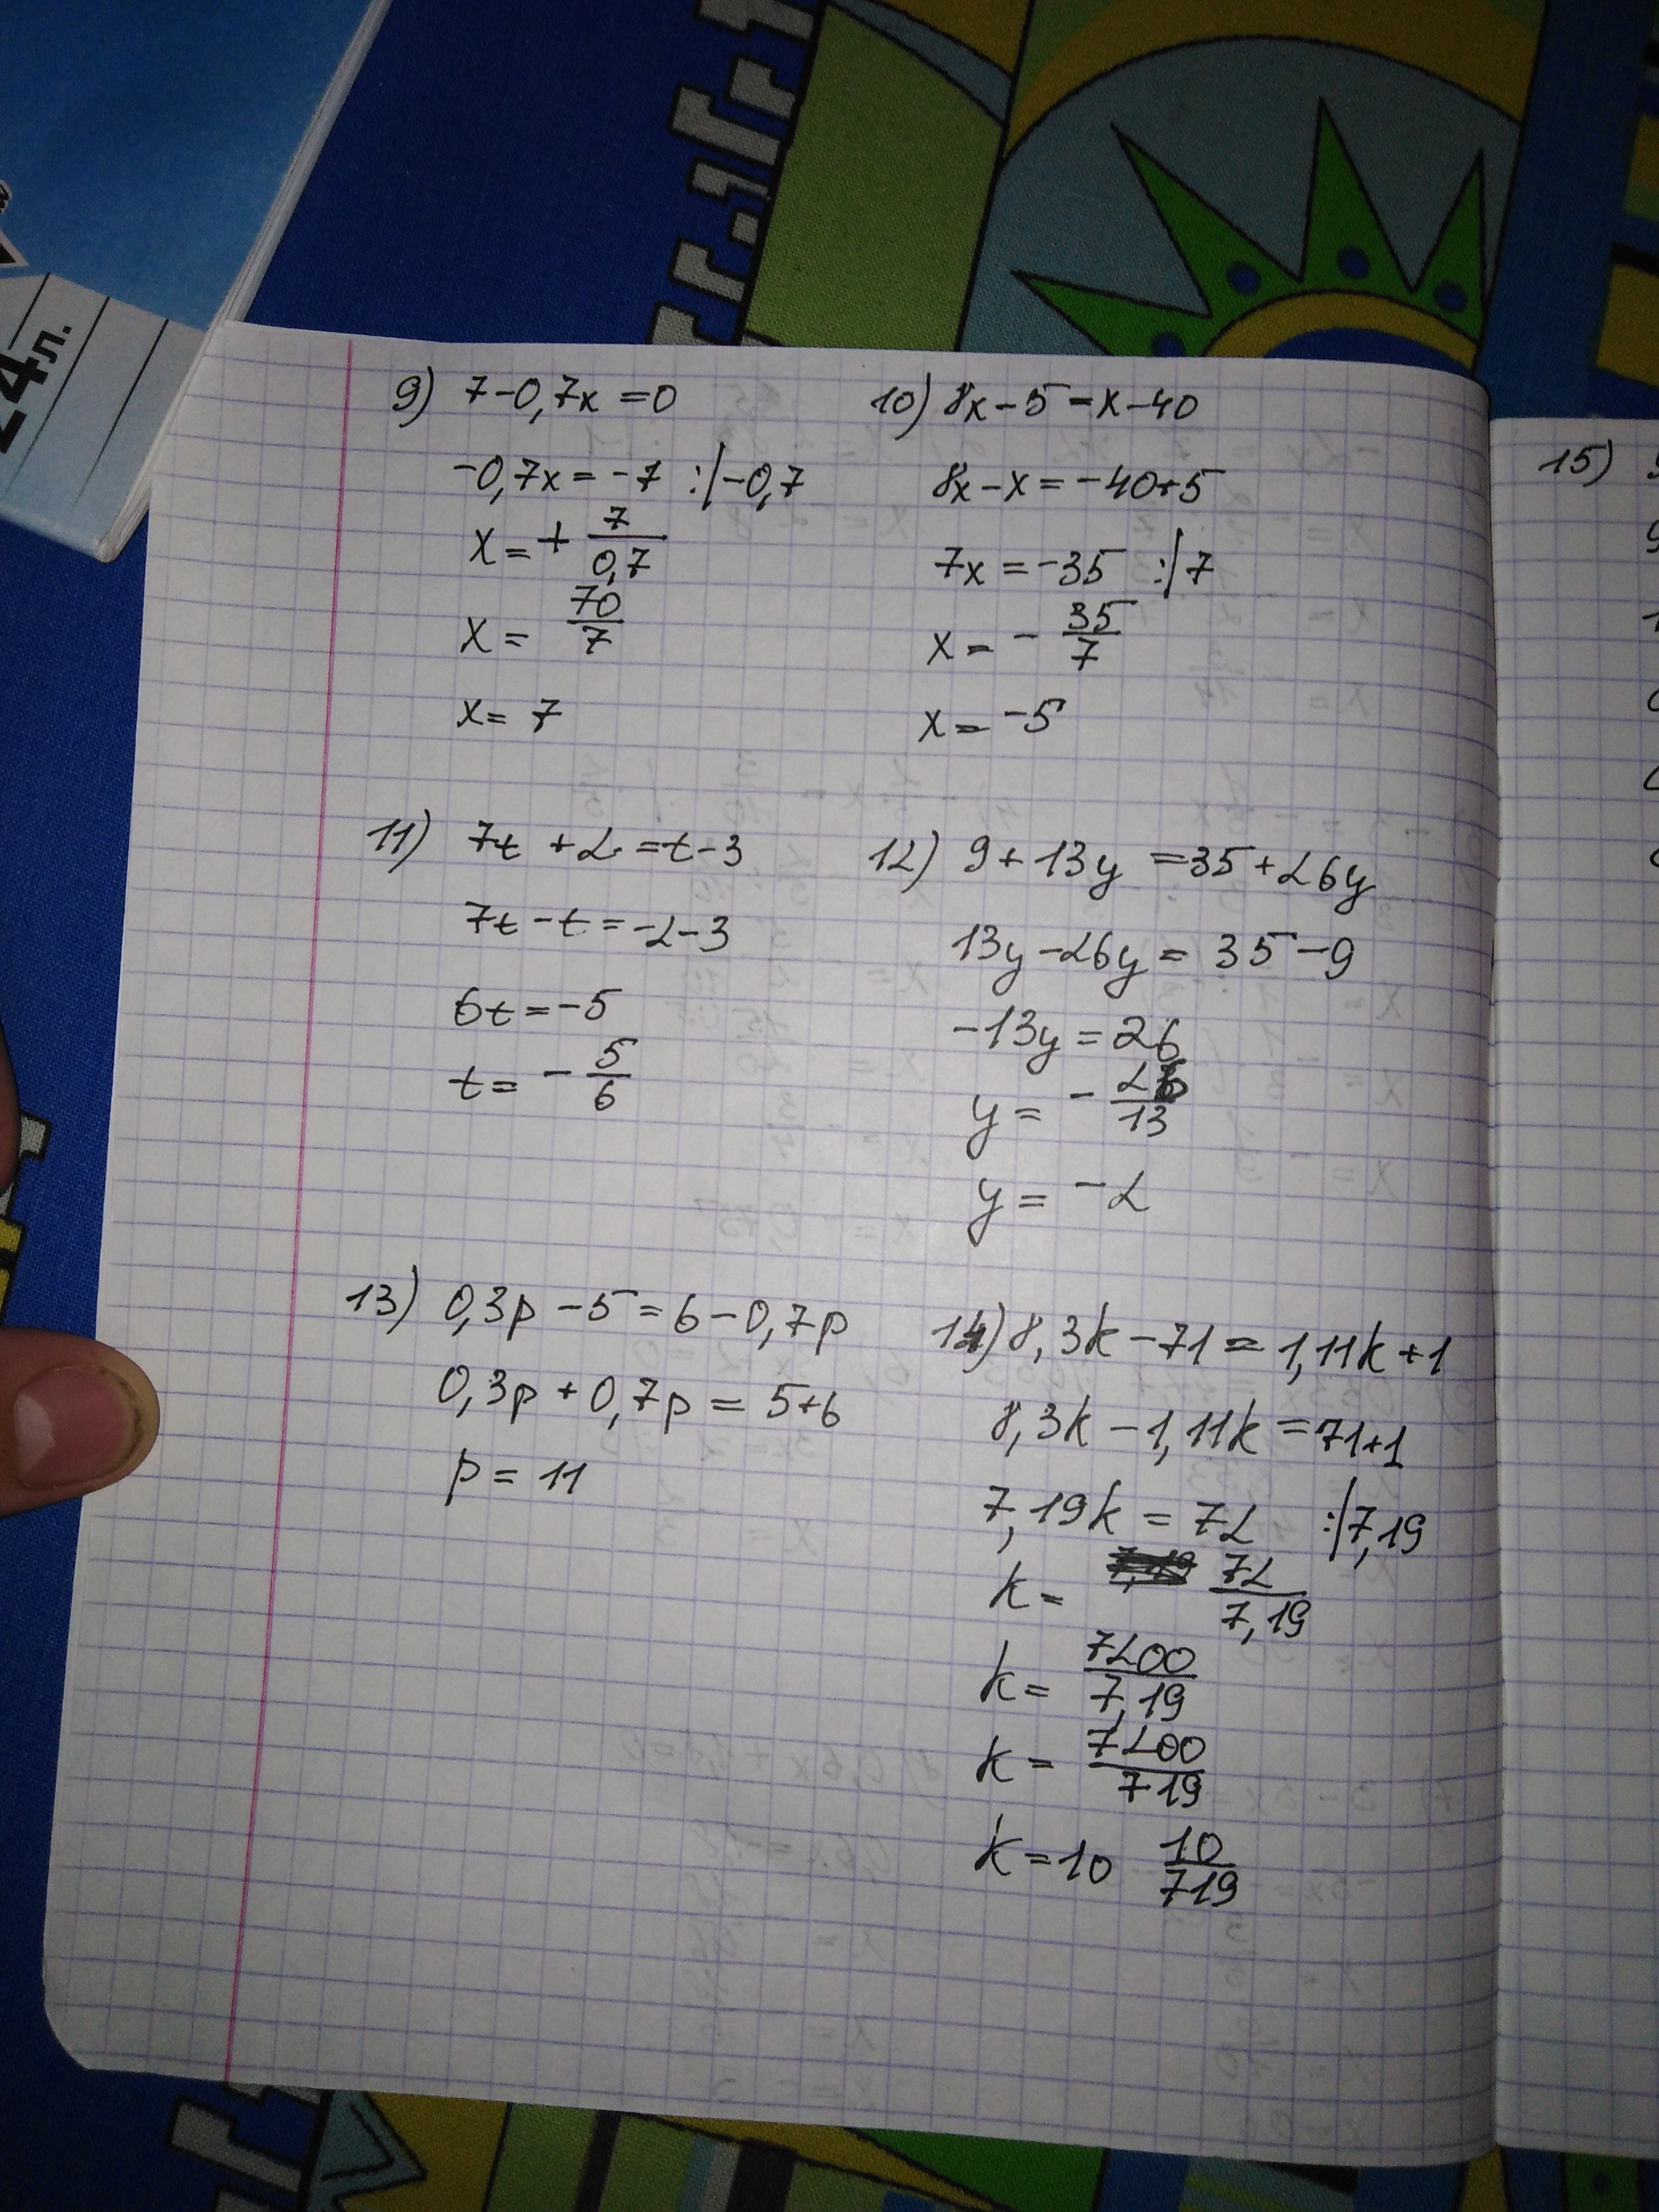 24л.
9) 7-0,7x=0
-0,7x=-7 :/-0,7
x=+ 7/0,7
x= 70/7
x= 7
10) 8x-5=x-40
8x-x=-40+5
7x=-35 :/7
x=- 35/7
x=-5
11) 7t+2=t-3
7t-t=-2-3
6t=-5
t= - 5/6
12) 9+13y=35+26y
13y-26y=35-9
-13y=26
y= - 26/13
y= -2
13) 0,3p-5=6-0,7p
0,3p+0,7p=5+6
p=11
14) 8,3k-71=1,11k+1
8,3k-1,11k=71+1
7,19k=72 :/7,19
k= 72/7,19
k= 7200/7,19
k= 7200/719
k=10 10/719
15)